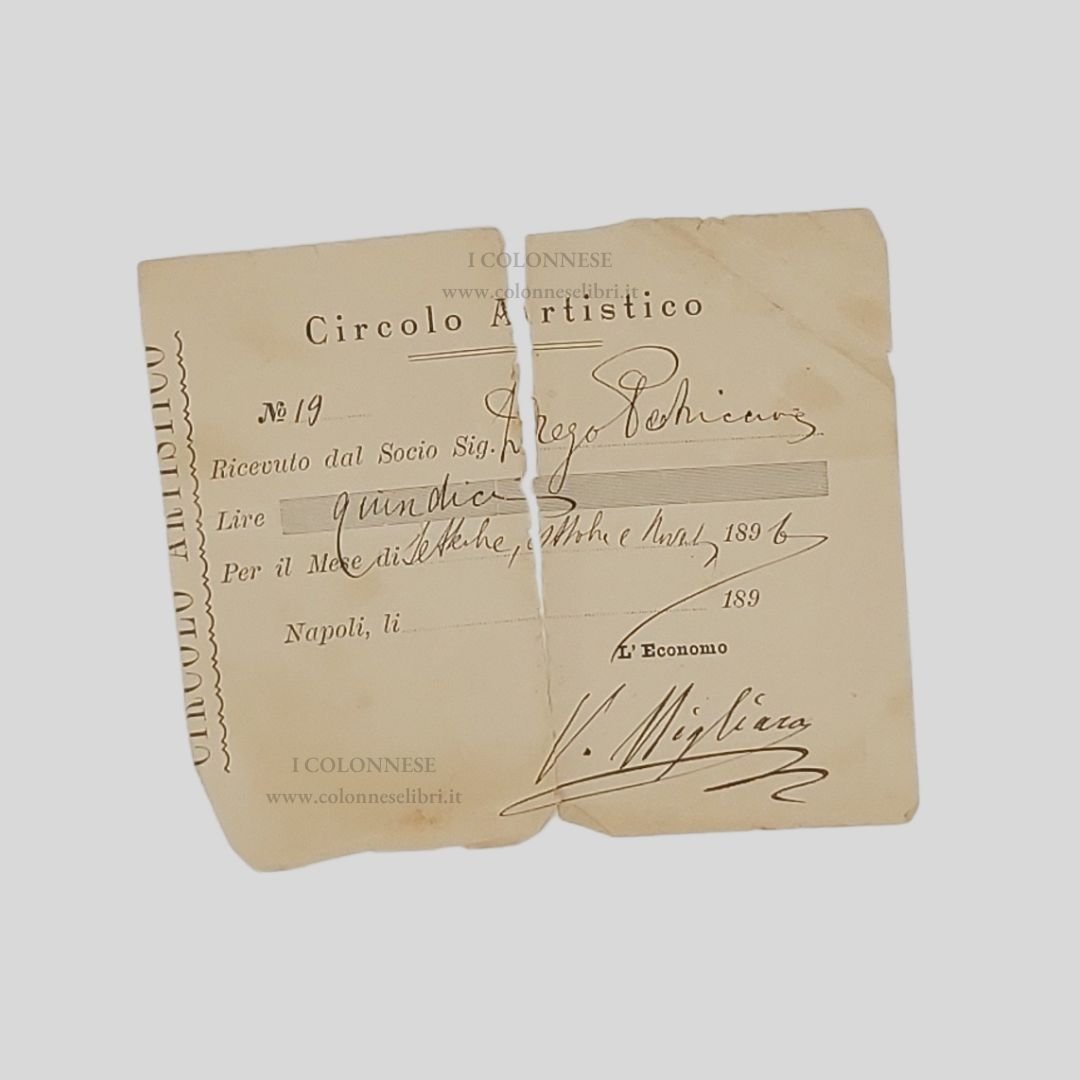 I COLONNESE
www.colonneselibri.it
Circolo Artistico
CIRCOLO ARTISTICO
№ 19
Ricevuto dal Socio Sig.
Lire quindici
Per il Mese di Settembre, Ottobre e 1896
Napoli, li 189
L' Economo
V. Migliaro
I COLONNESE
www.colonneselibri.it